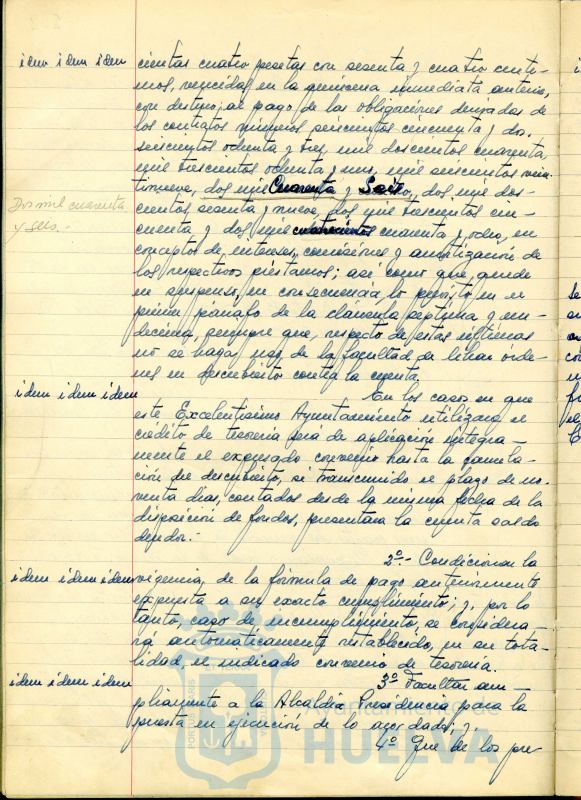 idem idem idem
cientas cuatro pesetas con sesenta y cuatro cénti-
mos, vencidas en la quincena inmediata anterior,
con destino al pago de las obligaciones derivadas de
los contratos números seiscientos cincuenta y dos,
seiscientos ochenta y tres, mil doscientos cuarenta,
mil trescientos ochenta y uno, mil seiscientos vein-
tinueve, dos mil Cuarenta y Seis, dos mil dos-
cientos sesenta y nueve, dos mil trescientos cin-
Dos mil cuarenta
y seis.-
cuenta y dos mil cuatrocientos cuarenta y ocho, en
conceptos de intereses, comisiones y amortización de
los respectivos préstamos; así como que, quede
en suspenso, en consecuencia lo previsto en el
primer párrafo de la cláusula séptima y un-
décima, siempre que, respecto de estas últimas
no se haga uso de la facultad de librar orde-
nes en descubierto contra la cuenta.
idem idem idem
En los casos en que
este Excelentísimo Ayuntamiento utilizara el
crédito de tesorería será de aplicación íntegra-
mente el expresado convenio hasta la cancela-
ción del descubierto, si transcurrido el plazo de no-
venta días, contados desde la misma fecha de la
disposición de fondos, presentara la cuenta saldo
deudor.-
2º.- Condicionar la
idem idem idem
vigencia, de la fórmula de pago anteriormente
expuesta a su exacto cumplimiento; y, por lo
tanto, caso de incumplimiento, se considera-
rá automáticamente restablecido, en su tota-
lidad, el indicado convenio de tesorería.
idem idem idem
3º Facultar am-
pliamente a la Alcaldía Presidencia para la
puesta en ejecución de lo acordado; y
4º Que de los pre
Ayuntamiento de
HUELVA